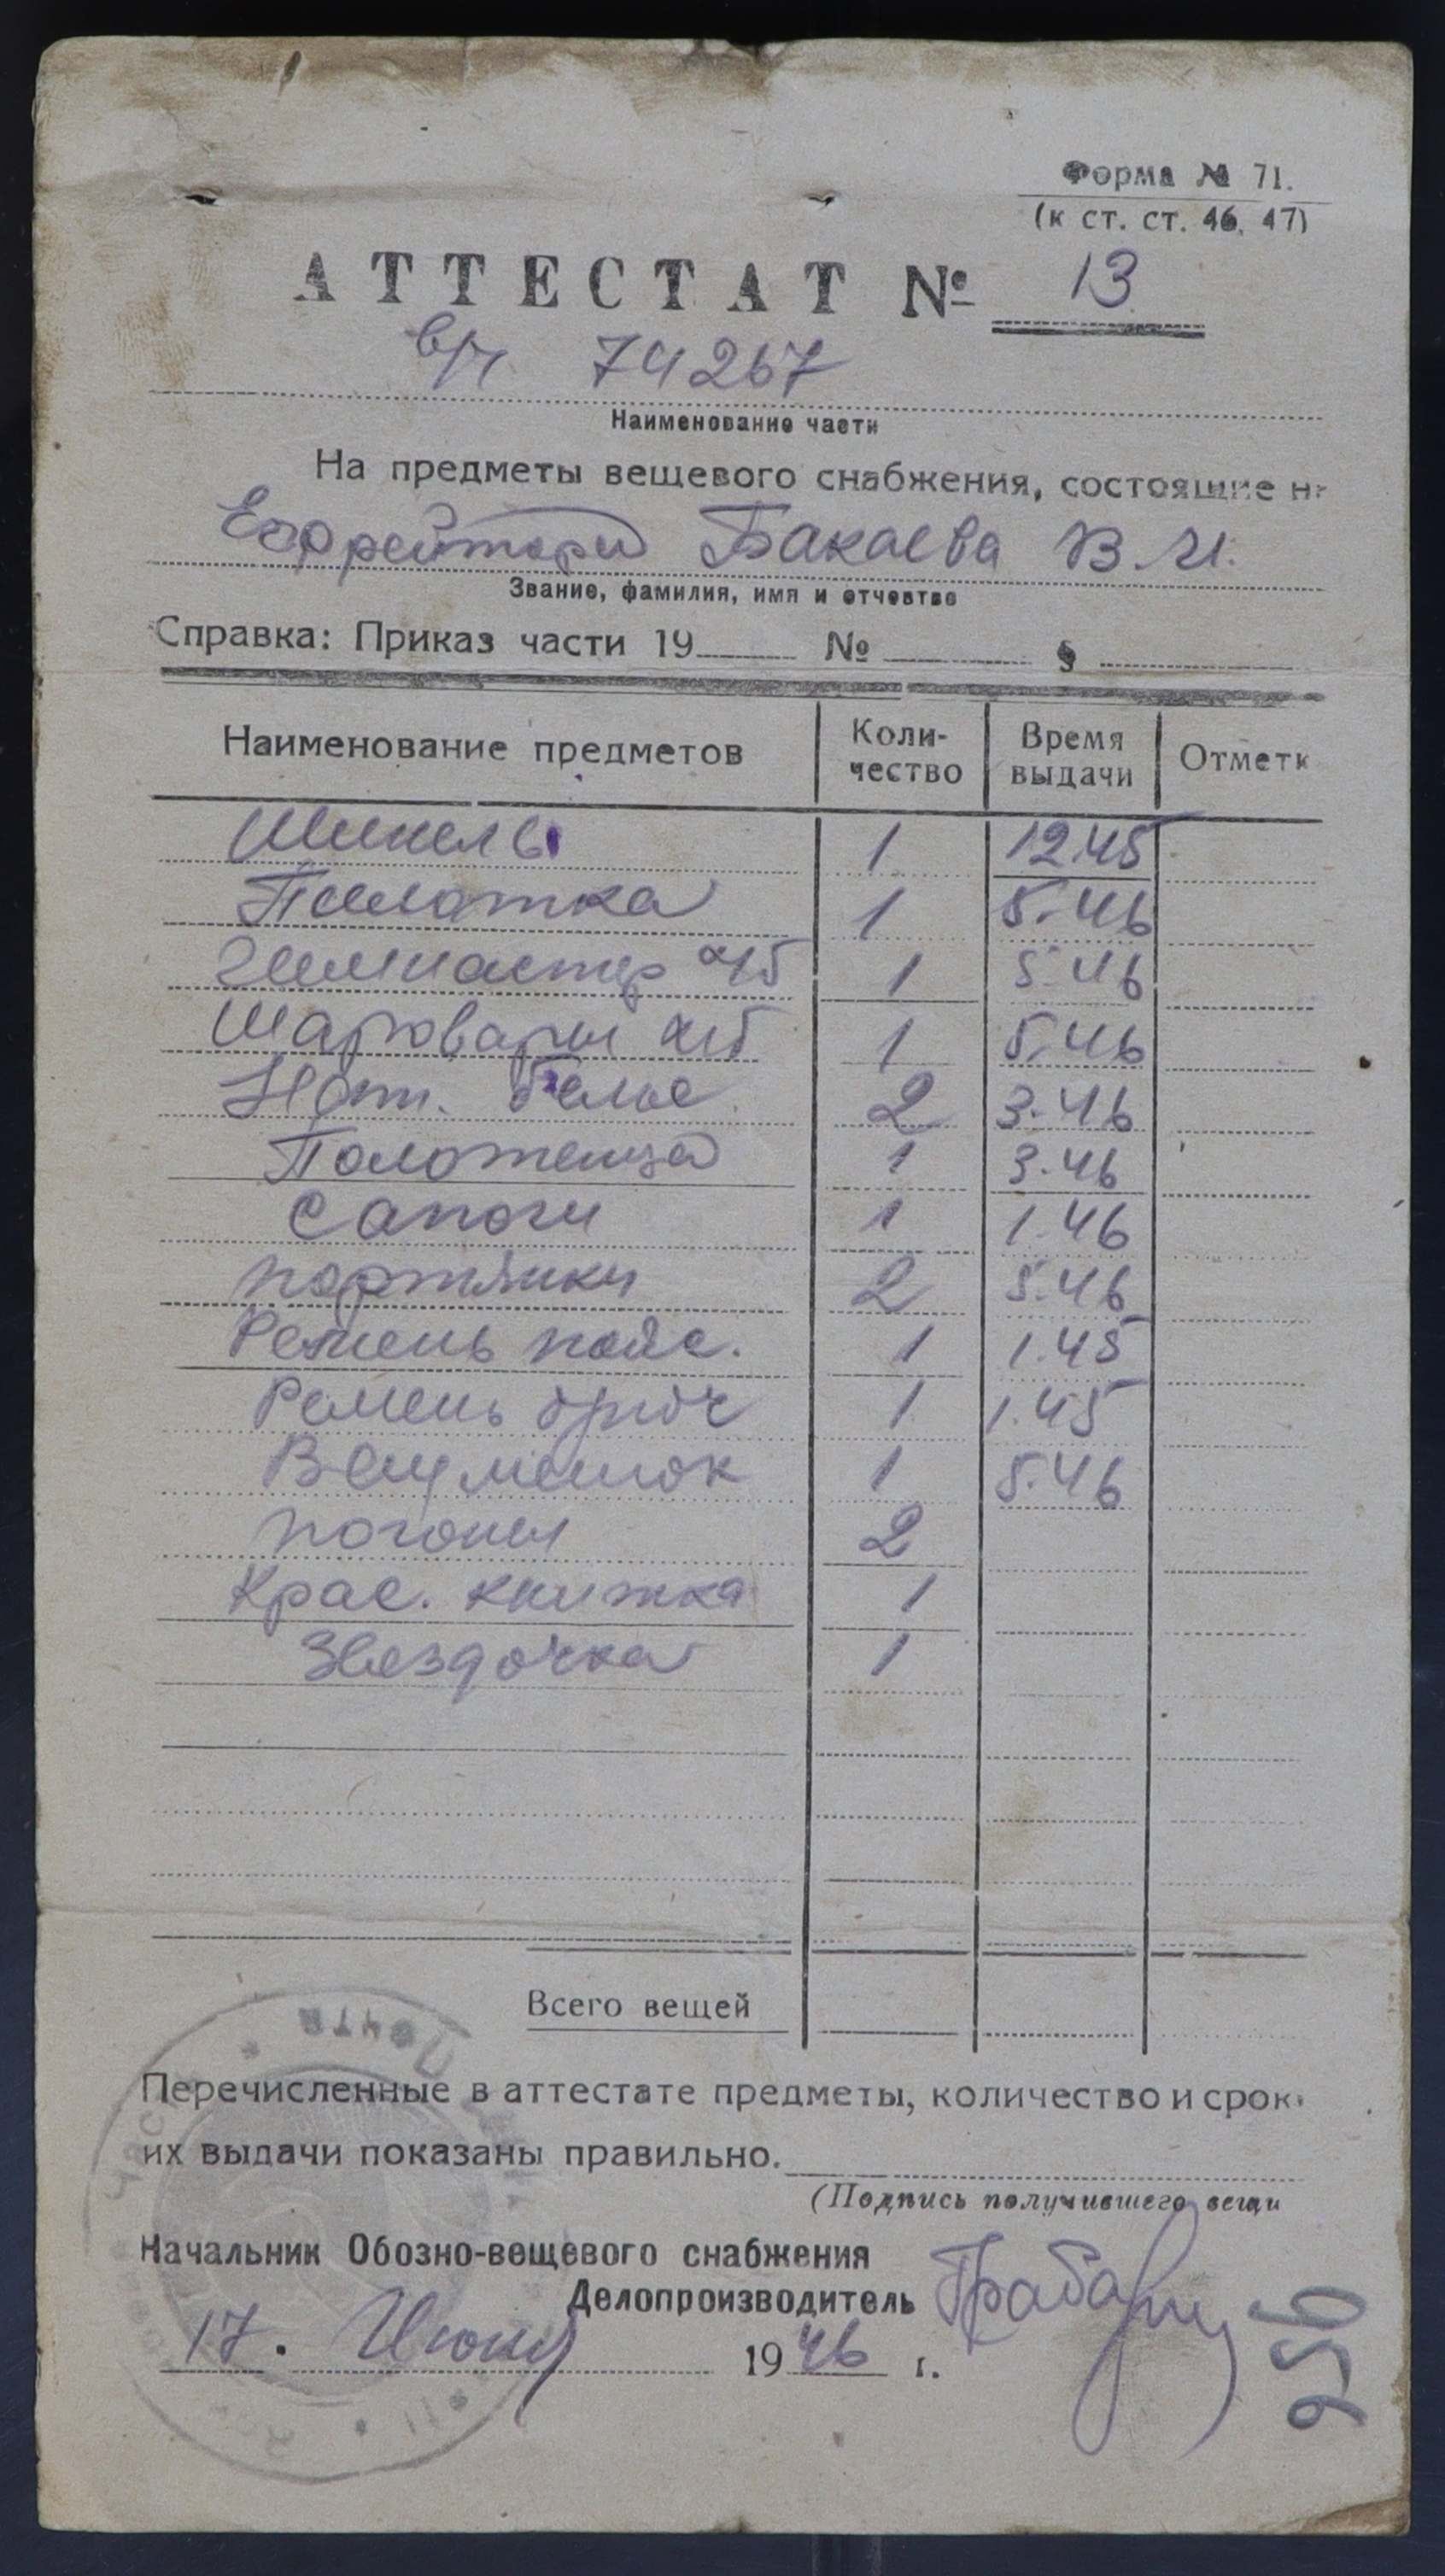 Форма № 71.
(к ст. ст. 46, 47)
АТТЕСТАТ № 13
в/ч 74267
Наименование части
На предметы вещевого снабжения, состоящие н
Ефрейтора Бакаева В. И.
Звание, фамилия, имя и отчество
Справка: Приказ части 19 № §
Наименование предметов Коли- чество Время выдачи Отметк
Шинель 1 12.45
Пилотка 1 5.46
Гимнастер х/б 1 5.46
Шаровары х/б 1 5.46
Нат. белье 2 3.46
Полотенца 1 3.46
Сапоги 1 1.46
портянки 2 5.46
Ремень пояс. 1 1.45
Ремень брюч 1 1.45
Вещмешок 1 5.46
погоны 2
Крас. книжка 1
Звездочка 1
Всего вещей
Перечисленные в аттестате предметы, количество и срок
их выдачи показаны правильно.
(Подпись получившего вещи
Начальник Обозно-вещевого снабжения
Делопроизводитель
17. Июня 1946 г.
256
Почта